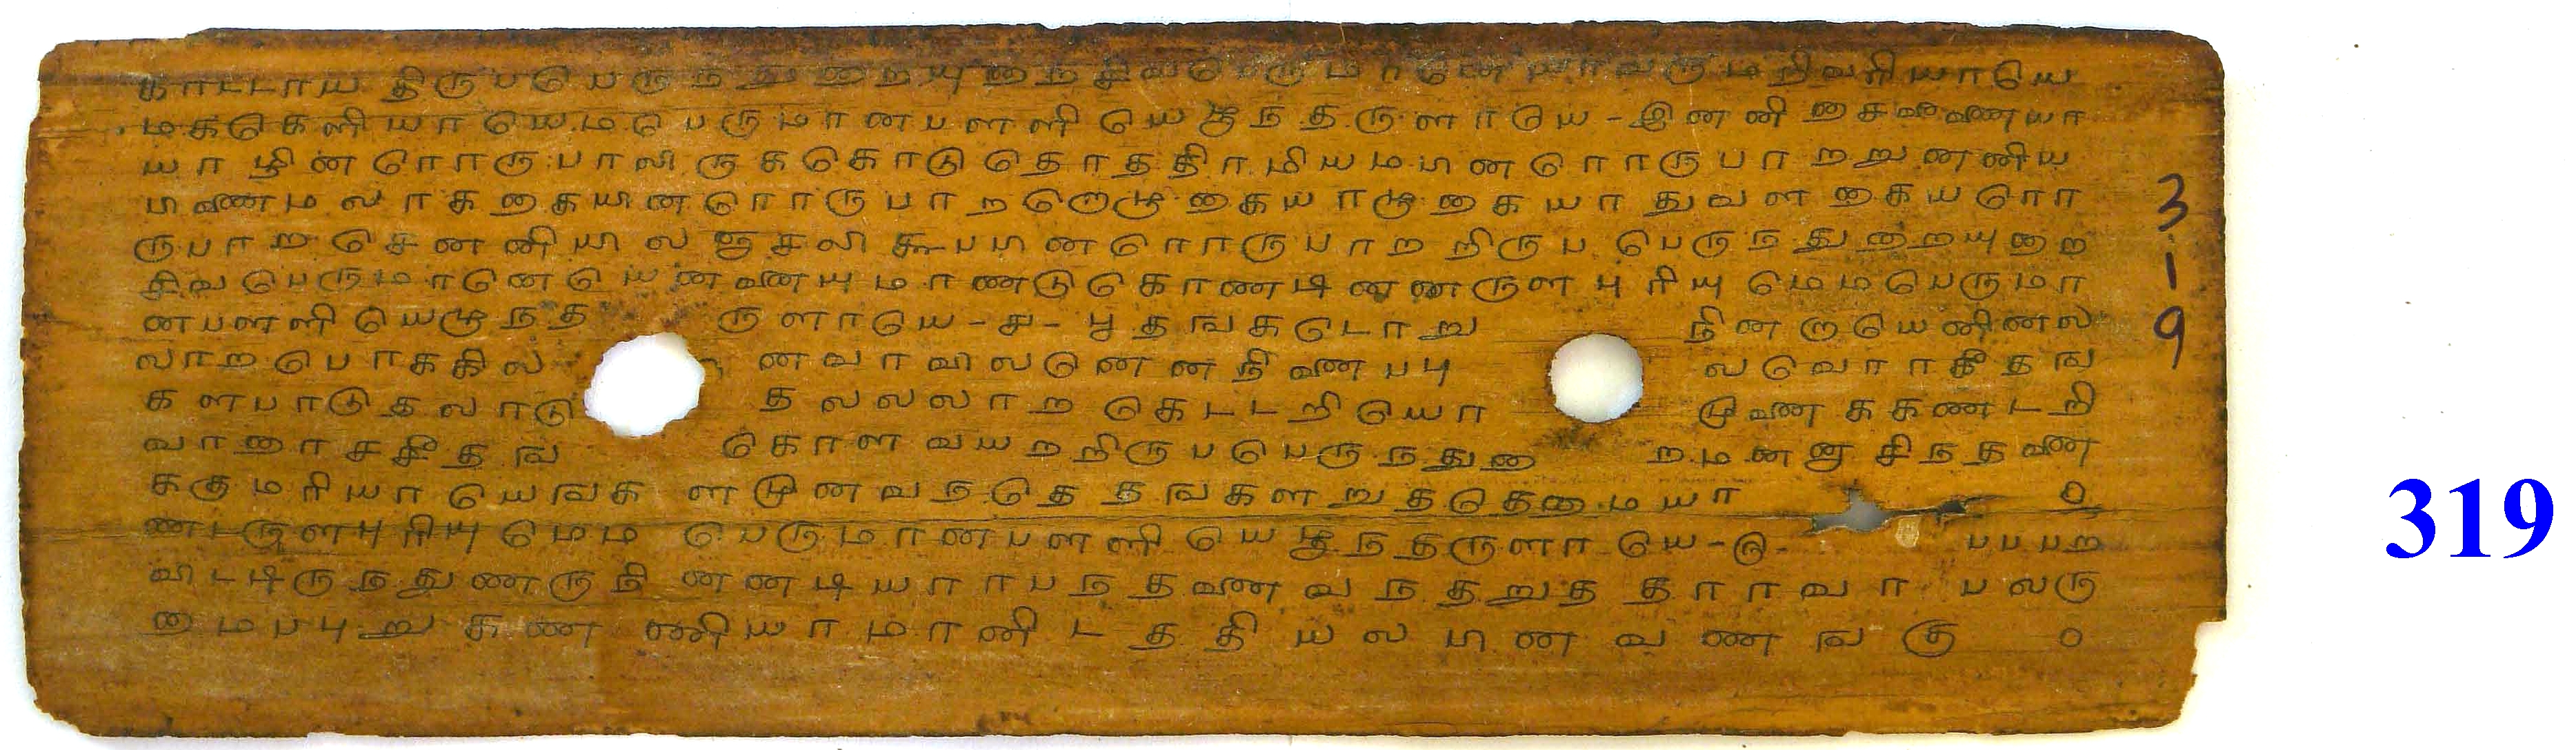 காடடாய திருபபெருநதுறையுறைசிவபெருமானெயாவருமறிவரியாயெ
மககெளியாயெமபெருமானபளளியெழுநதருளாயெ - இனனிசைவீணையா
யாழினரொருபாலிருககொடுதொததிரமியமபினரொருபாறறுனனிய
பிணைமலரகையினரொருபாறறெழுகையரழுகையாதுவளகையரொ
ருபாறசெனனியிலஞசலிகூபபினரொருபாறறிருபபெருநதுறையுறை
சிவபெருமானெயெனனையுமாணடுகொணடினனருளபுரியுமெமபெருமா
னபளளியெழுநத ருளாயெ - ச - பூதஙகடொறு நினறாயெனினல
லாறபொககில னவரவிலனெனநினைபபு லவொரகீதங
களபாடுதலாடு தலலலாற கெடடறியொ முனைககணடறி
வாரைசசீதங கொளவயறறிருபபெருநதுறை றமனனசிநதனை
ககுமரியாயெஙக ளமுனவநதெதஙகளறுததெமையா ௦
ணடருளபுரியுமெம பெருமானபளளியெழுநதருளாயெ - ரு - பபபற
விடடிருநதுணருநி னனடியாரபநதனைவநதறுததாரவா பலரு
மைபபுறுகண ணியரமானிடததியலபினவணஙகு ௦
319
319